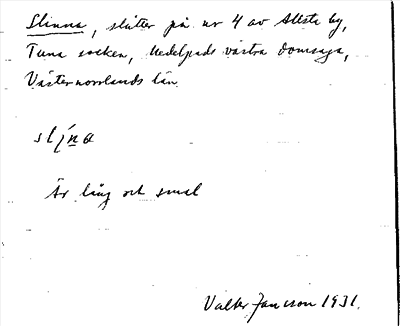 Slinna, slåtter på nr 4 av Allsta by,
Tuna socken, Medelpads västra domsaga,
Västernorrlands län
slịna
Är lång och smal
Valter Jansson 1931.